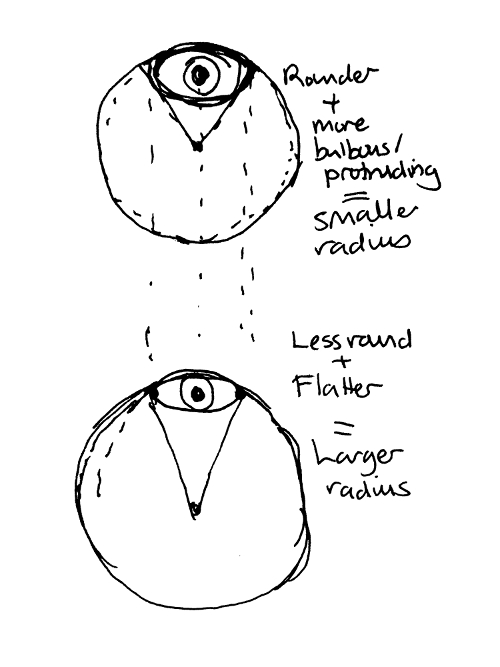 Rounder
+
more
bulbous/
protruding
=
smaller
radius
Less round
+
Flatter
=
Larger
radius